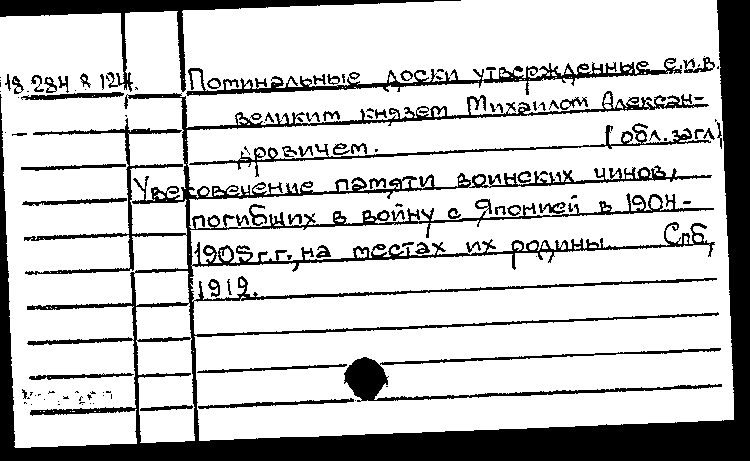 18.284.8.124. Поминальные доски утвержденные е.и.в.
великим князем Михаилом Алексан-
дровичем. (обл.загл)
Увековечение памяти воинских чинов,
погибших в войну с Японией в 1904-
1905 г.г., на местах их родины. Спб,
1912.